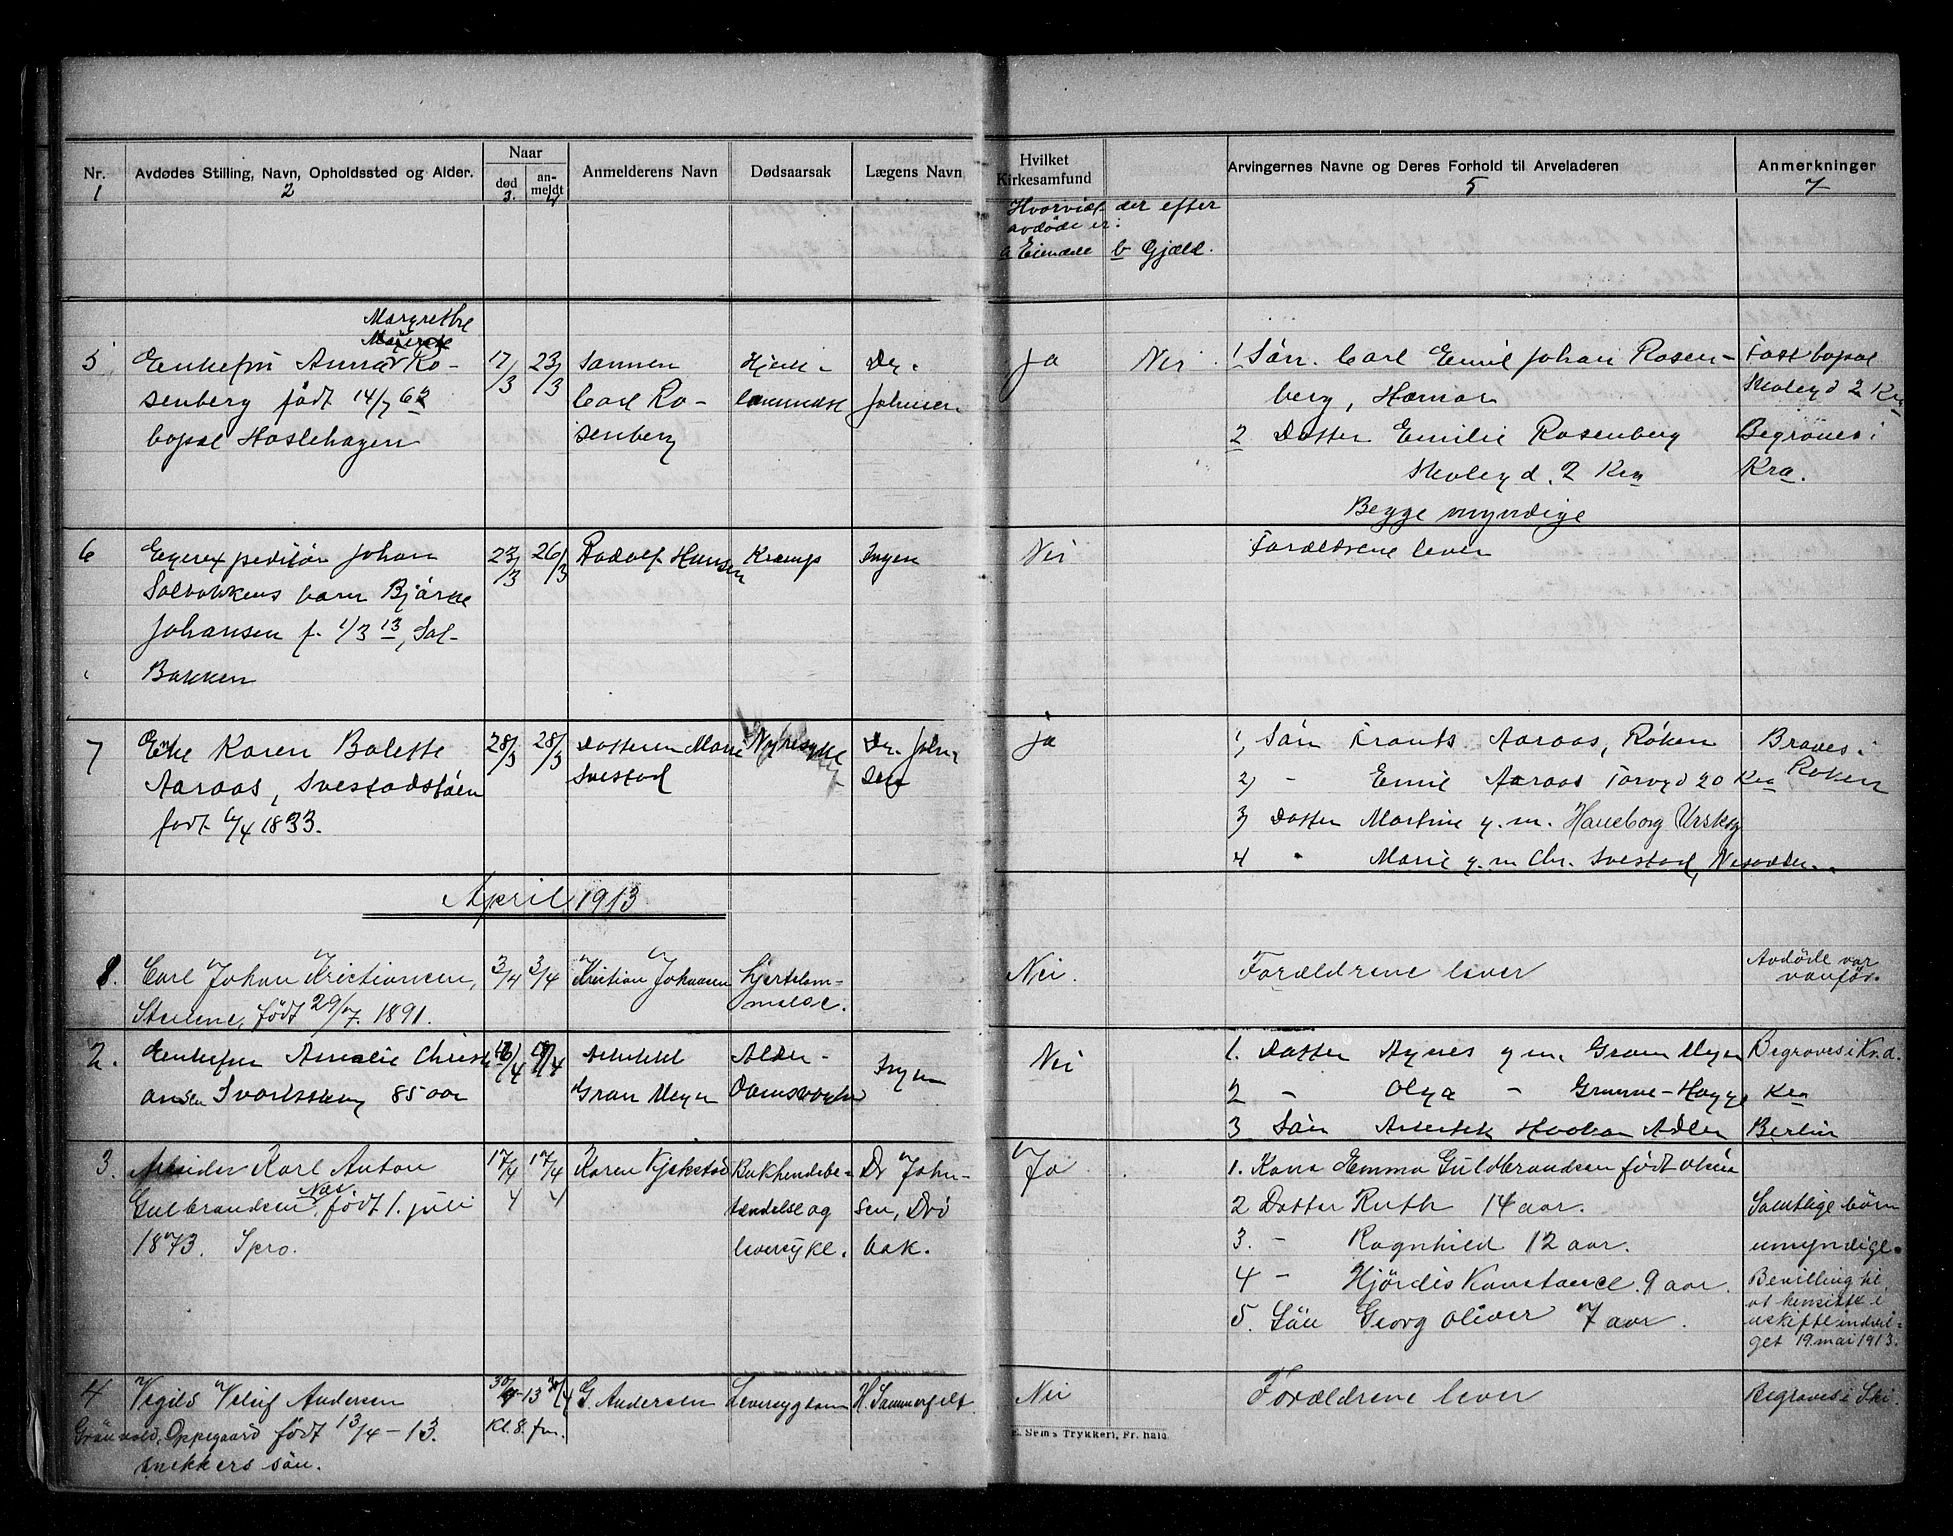 Nr. Avdødes Stilling, Navn, Opholdssted og Alder. Naar død an-meldt Anmelderens Navn Dødsaarsak Lægens Navn Hvilket Kirkesamfund Arvingernes Navne og Deres Forhold til Arveladeren Anmerkninger
1 2 3. 4 5 7
Hvorvidt der efter
avdøde er:
a Eiendele b Gjæld.
Margrethe
5 Enkefru Anna Ro- 17/3 23/3 Sønnen Hjerte- Dr. Ja Nei 1, Søn. Carl Emil Johan Rosen- Fast bopæl
senberg født 14/7 62 Carl Ro- lammelse Johnsen berg, Hamar Skolegd 2 Kra
bopæl Haslehagen senberg 2 Datter Emilie Rosenberg Begraves i
Skolegd. 2 Kra Kra.
Begge myndige
6 Egerexpeditør Johan 23/3 26/3 Rudolf Hansen Kramp Ingen Nei Forældrene lever
Solbakkens barn Bjarne
Johansen f. 1/3 13, Sol-
Bakken
7 Enke Karen Bolette 28/3 28/3 Datteren Marie Nyresyke Dr. John- ja 1, Søn Frants Aaraas, Røken Braves i
Aaraas, Svestadstøen Svestad sen 2, - Emil Aaraas Torvgd 20 Kra Røken
født 6/4 1833. 3, Datter Martine g. m. Haneborg Urskog
4 " Marie g. m Chr. Svestad, Nesodden.
April 1913
1. Carl Johan Kristiansen, 3/4 3/4 Kristian Johansen Hjertelam- Nei. Forældrene lever Avdøde var
Steilene, født 29/7. 1891. melse. vanfør.
2. Enkefru Amalie Christi 16/4 17/4 Arkitekt Alder- Ingen Nei 1. Datter Agnes g m. Gran Meyer Begraves i Kr.a.
ansen Svartskog 85 aar Gran Meyer domssvaghed 2 - Olga - Grunne-Hagge Kra
3 Søn Arkitekt Haakon Adler Berlin
3. Arbeider Karl Anton 17/4 17/4 Karen Kjekstad Bukhindebe- Dr John- Ja 1. Kona Emma Guldbrandsen født Olsen
Gulbrandsen Næs, født 1. juli 4 4 tændelse og sen, Drø 2 Datter Ruth 14 aar. Samtlige børn
1873. Spro. leversyke. bak. 3. - Ragnhild 12 aar. umyndige.
4 - Hjørdis Konstance. 9 aar. Bevilling til
at hensitte i
5. Søn Georg Oliver 7 aar. uskifte indvil-
get 19. mai 1913.
4 Vegils Veluf Andersen 30/4-13 30/4 G. Andersen Leversygdom H. Sommerfelt Nei Forældrene lever Begraves i Ski.
Grünvold, Oppegaard født 13/4-13. Kl. 8. fm.
snekkers søn.
E. Sems Trykkeri, Fr.hald.